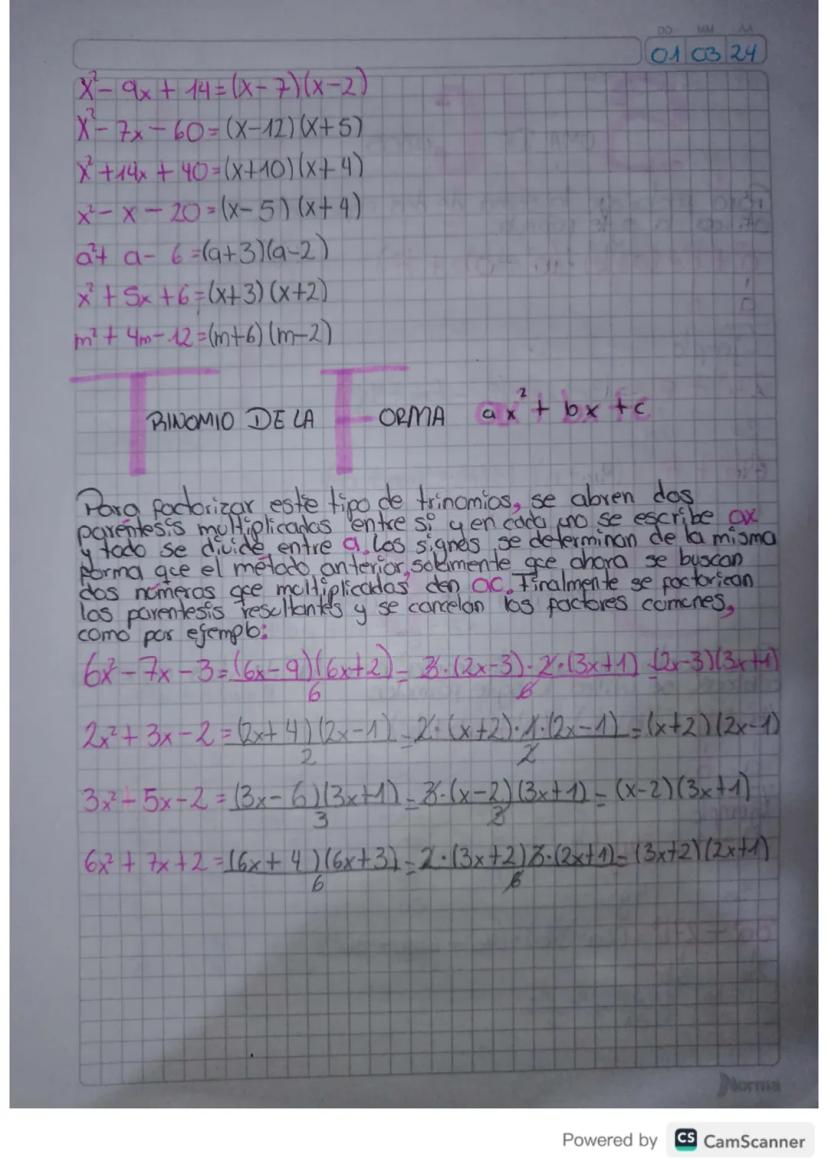 DD MM AA
01 03 24
x² - 9x + 14 = (x - 7)(x - 2)
x² - 7x - 60 = (x - 12)(x + 5)
x² + 14x + 40 = (x + 10)(x + 4)
x² - x - 20 = (x - 5)(x + 4)
a² + a - 6 = (a + 3)(a - 2)
x² + 5x + 6 = (x + 3)(x + 2)
m² + 4m - 12 = (m + 6)(m - 2)
TRINOMIO DE LA FORMA ax² + bx + c
Para factorizar este tipo de trinomios, se abren dos
paréntesis multiplicados entre sí y en cada uno se escribe ax
y todo se divide entre a. Los signos se determinan de la misma
forma que el método anterior, solamente que ahora se buscan
dos números que multiplicados den ac. Finalmente se factorizan
los parentesis resultantes y se cancelan los factores comunes,
como por ejemplo:
6x² - 7x - 3 = (6x - 9)(6x + 2)/6 = 3·(2x - 3)·2·(3x + 1)/6 = (2x - 3)(3x + 1)
2x² + 3x - 2 = (2x + 4)(2x - 1)/2 = 2·(x + 2)·1·(2x - 1)/2 = (x + 2)(2x - 1)
3x² - 5x - 2 = (3x - 6)(3x + 1)/3 = 3·(x - 2)(3x + 1)/3 = (x - 2)(3x + 1)
6x² + 7x + 2 = (6x + 4)(6x + 3)/6 = 2·(3x + 2)3·(2x + 1)/6 = (3x + 2)(2x + 1)
Norma
Powered by CS CamScanner